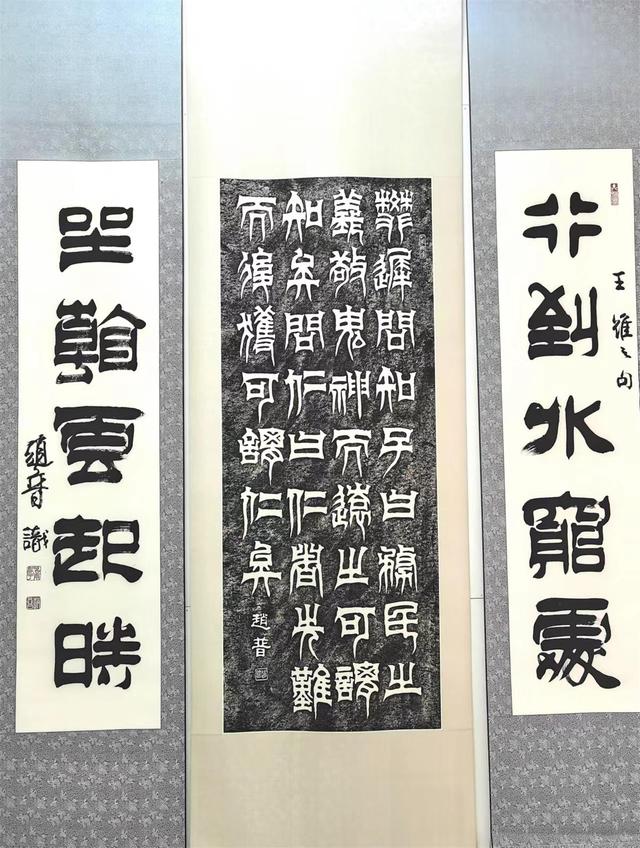 行到水窮處
王維之句
樊遲問知子曰務民之
義敬鬼神而遠之可謂
知矣問仁曰仁者先難
而後獲可謂仁矣
趙普
坐看雲起時
趙普識